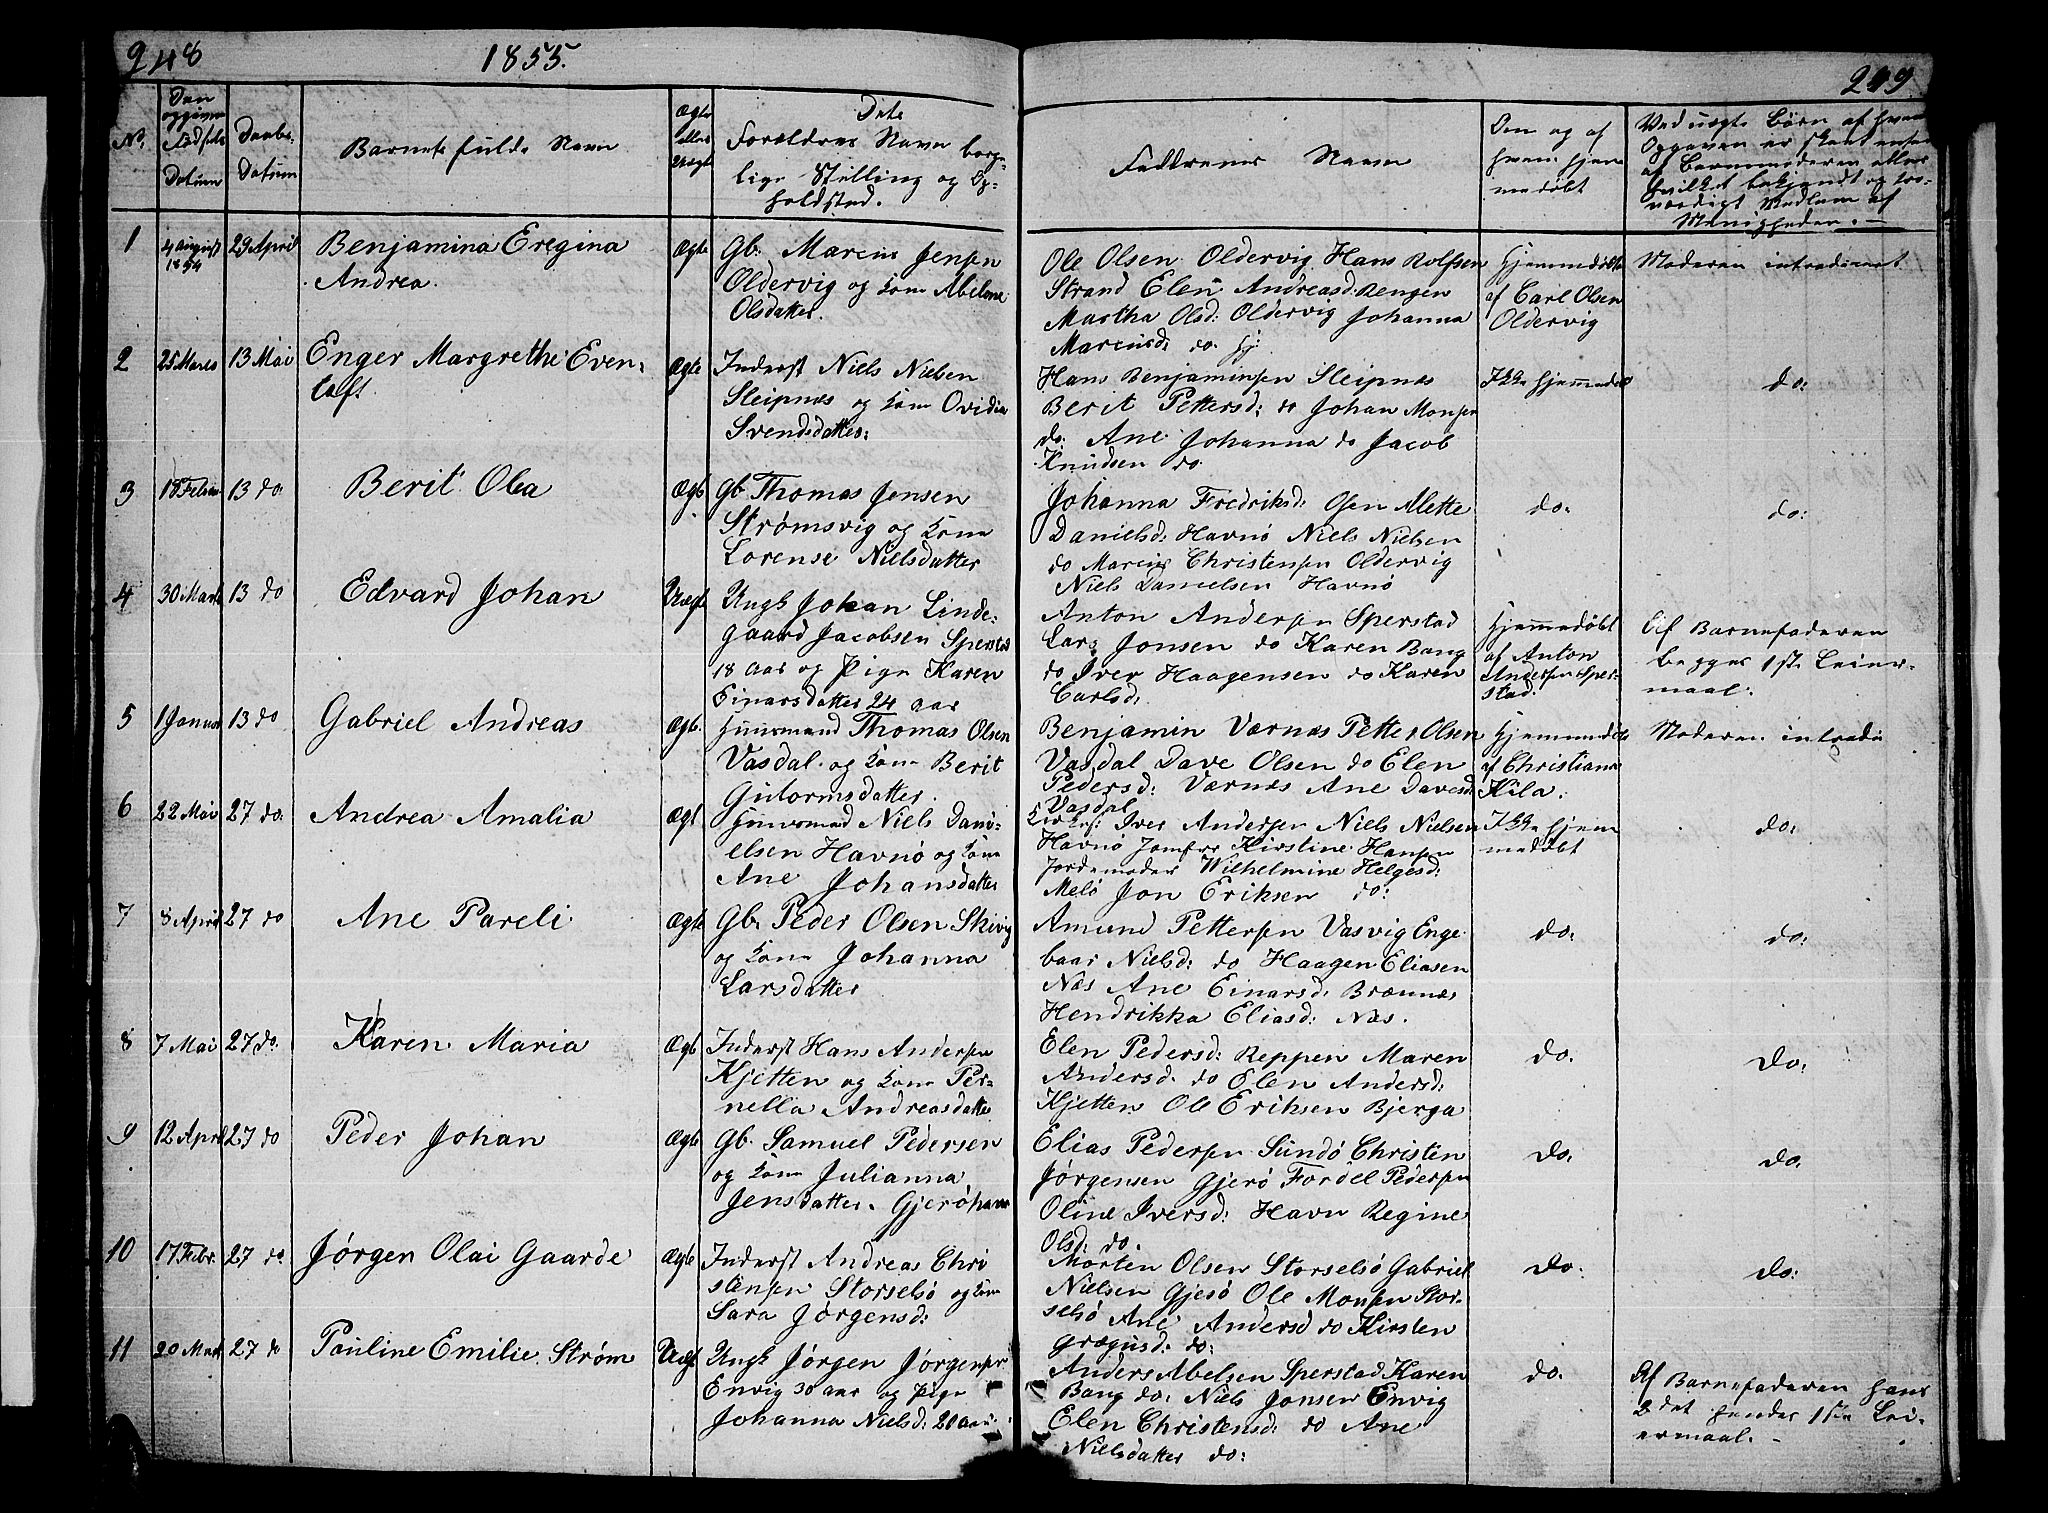 248
1855.
249
No.
Den opgivne Fødsels Datum
Daabs-Datum
Barnets fulde Navn
Ægte eller Uægte
Dets Forældres Navn borgelige Stilling og Opholdsted.
Faddrenes Navn
Om og af hvem hjemmedøbt
Ved uægte Børn af hvem Opgaven er skeet enten af Barnemoderen eller hvilket bekjendt og troværdigt Medlem af Menigheden. —
1
4 August 1854
29 April
Benjamina Eregina
Andrea.
Ægte
Gb: Marcus Jensen
Oldervig og Kone Abelone
Olsdatter.
Ole Olsen Oldervig Hans Rolfsen
Strand Elen Andreasd: Rengen
Martha Olsd: Oldervig Johanna
Marcusd: do. Gj:
Hjemmedøbt
af Carl Olsen
Oldervig
Moderen introduceret
2
25 Marts
13 Mai
Enger Margrethe Even-
taft.
Ægte
Inderst Niels Nielsen
Sleipnes og Kone Ovidia
Svendsdatter:
Hans Benjaminsen Sleipnæs
Berit Pettersd: do Johan Monsen
do. Ane Johanna do Jacob
Knudsen do.
Ikke hjemmedøbt
do:
3
18 Februar
13 do.
Berit Olea
Ægte
Gb Thomas Jensen
Strømsvig og Kone
Lorense Nielsdatter
Johanna Fredriksd: Osen Alette
Danielsd: Havnø Niels Nielsen
do Marcus Christensen Oldervig
Niels Danielsen Havnø
do.
do:
4
30 Marts
13 do
Edvard Johan
Uægte
Ungk Johan Linde-
gaard Jacobsen Sperstad
18 aar og Pige Karen
Einarsdatter 24 aar
Anton Andersen Sperstad
Lars Jonsen do Karen Bang
do Iver Haagensen do Karen
Carlsd:
Hjemmedøbt
af Anton
Andersen Sper-
stad.
Af Barnefaderen
begges 1ste Leier-
maal.
5
1 Januar
13 do
Gabriel Andreas
Ægte.
Huusmand Thomas Olsen
Vasdal og Kone Berit
Gutormsdatter.
Benjamin Værnæs Petter Olsen
Vasdal Dave Olsen do Elen
Pedersd: Værnæs Ane Davesd
Vasdal
Hjemmedøbt
af Christian
Kila.
Moderen introdu
6
22 Mai
27 do.
Andrea Amalia
Ægt
Huusmad Niels Dani-
elsen Havnø og Kone
Ane Johansdatter
Kirks: Iver Andersen Niels Nielsen
Havnø Jomfru Kirstine Hansen
Jordemoder Wilhelmine Helgesd:
Melø Jon Eriksen do:
Ikke hjem
medøbt
do:
7
8 April
27 do
Ane Pareli
Ægte
Gb: Peder Olsen Skivig
og Kone Johanna
Larsdatter
Amund Pettersen Vasvig Enge-
baar Nielsd: do Haagen Eliasen
Næs Ane Einarsd: Brænnes
Hendrikka Eliasd: Næs.
do:
do:
8
7 Mai
27 do.
Karen Maria
Ægte
Inderst Hans Andersen
Kjetten og Kone Per-
nella Andreasdatter
Elen Pedersd: Reppen Maren
Andersd: do Elen Andersd:
Kjetten Ole Eriksen Bjerga
do.
do:
9
12 April
27 do
Peder Johan
Ægte
Gb. Samuel Pedersen
og Kone Julianna
Jensdatter. Gjerøhavn
Elias Pedersen Sundø Christen
Jørgensen Gjerø Fordel Pedersen
Oline Iversd: Havn Regine
Olsd: do.
do.
do.
10
17 Febr.
27 do.
Jørgen Olai Gaarde
Ægte
Inderst Andreas Chri
stensen Storselsø og Kone
Sara Jørgensd:
Morten Olsen Storselsø Gabriel
Nielsen Gjesø Ole Monsen Stor-
selsø Ane Andersd do Kirsten
Grægusd: do:
do:
do:
11
20 Mart
27 do
Pauline Emilie Strøm
Uægt
Ungk Jørgen Jørgensen
Envig 30 aar og Pige
Johanna Nielsd: 20 aar.
Anders Abelsen Sperstad Karen
Bang do: Niels Jonsen Envig
Elen Christensd: do Ane
Nielsdatter do:
do.
Af Barnefaderen hans
2det hendes 1ste Lei-
ermaal. -